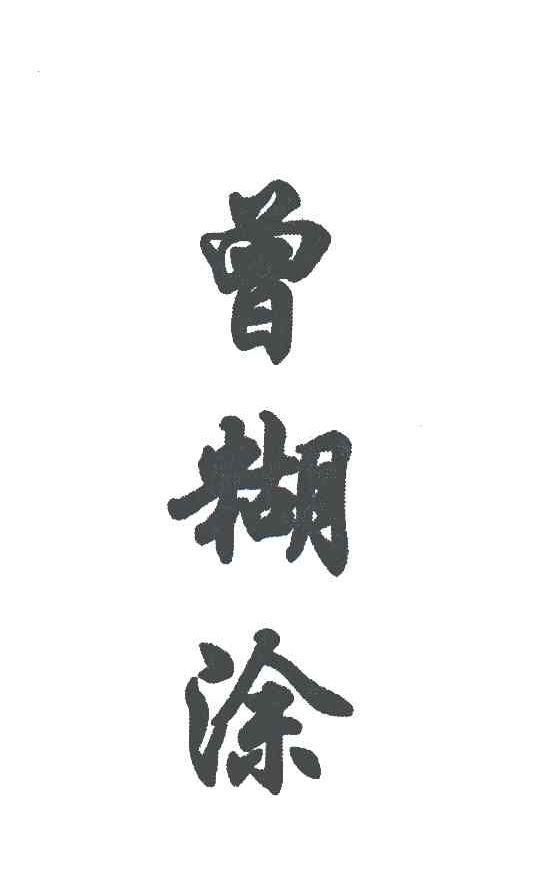 曾糊涂